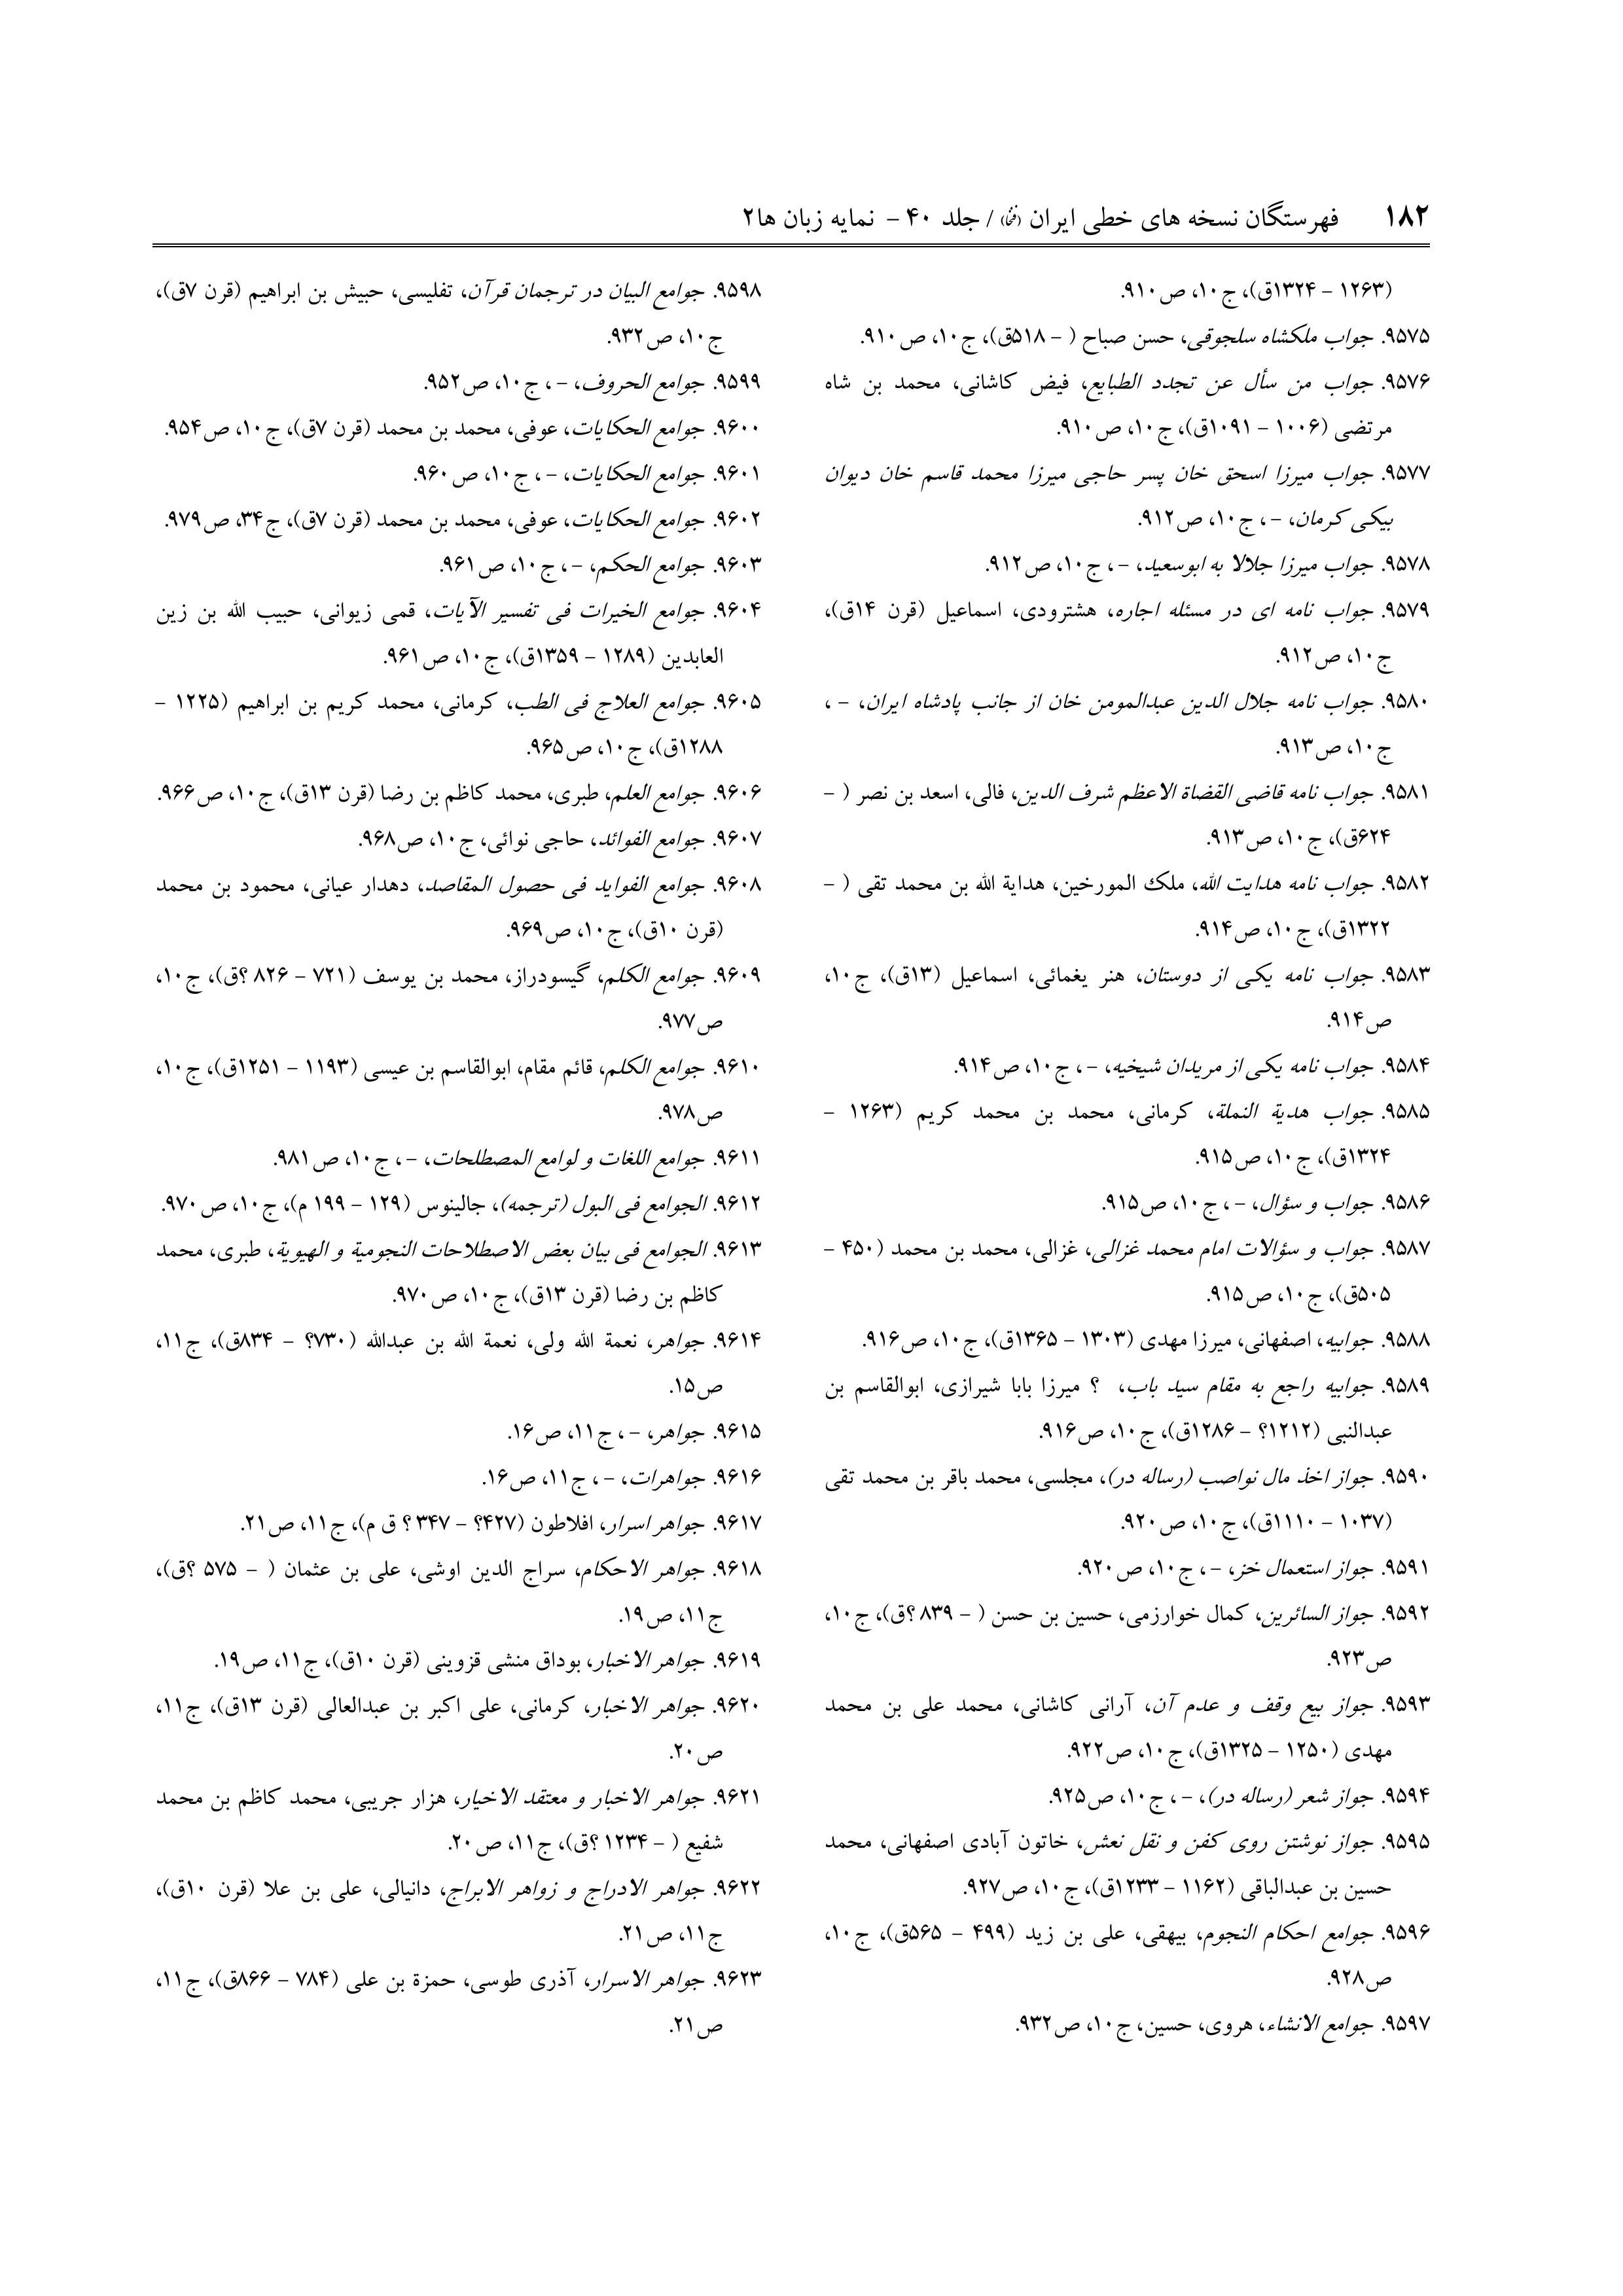 ۱۸۲ فهرستگان نسخه های خطی ایران (فنخا) / جلد ۴۰ - نمایه زبان ها۲
(۱۲۶۳ - ۱۳۲۴ق)، ج۱۰، ص۹۱۰.
۹۵۷۵. جواب ملکشاه سلجوقی، حسن صباح ( - ۵۱۸ق)، ج۱۰، ص۹۱۰.
۹۵۷۶. جواب من سأل عن تجدد الطبایع، فیض کاشانی، محمد بن شاه
مرتضی (۱۰۰۶ - ۱۰۹۱ق)، ج۱۰، ص۹۱۰.
۹۵۷۷. جواب میرزا اسحق خان پسر حاجی میرزا محمد قاسم خان دیوان
بیکی کرمان، -، ج۱۰، ص۹۱۲.
۹۵۷۸. جواب میرزا جلالا به ابوسعید، -، ج۱۰، ص۹۱۲.
۹۵۷۹. جواب نامه ای در مسئله اجاره، هشترودی، اسماعیل (قرن ۱۴ق)،
ج۱۰، ص۹۱۲.
۹۵۸۰. جواب نامه جلال الدین عبدالمومن خان از جانب پادشاه ایران، - ،
ج۱۰، ص۹۱۳.
۹۵۸۱. جواب نامه قاضی القضاة الاعظم شرف الدین، فالی، اسعد بن نصر ( -
۶۲۴ق)، ج۱۰، ص۹۱۳.
۹۵۸۲. جواب نامه هدایت الله، ملک المورخین، هدایة الله بن محمد تقی ( -
۱۳۲۲ق)، ج۱۰، ص۹۱۴.
۹۵۸۳. جواب نامه یکی از دوستان، هنر یغمائی، اسماعیل (۱۳ق)، ج۱۰،
ص۹۱۴.
۹۵۸۴. جواب نامه یکی از مریدان شیخیه، -، ج۱۰، ص۹۱۴.
۹۵۸۵. جواب هدیة النملة، کرمانی، محمد بن محمد کریم (۱۲۶۳ -
۱۳۲۴ق)، ج۱۰، ص۹۱۵.
۹۵۸۶. جواب و سؤال، -، ج۱۰، ص۹۱۵.
۹۵۸۷. جواب و سؤالات امام محمد غزالی، غزالی، محمد بن محمد (۴۵۰ -
۵۰۵ق)، ج۱۰، ص۹۱۵.
۹۵۸۸. جوابیه، اصفهانی، میرزا مهدی (۱۳۰۳ - ۱۳۶۵ق)، ج۱۰، ص۹۱۶.
۹۵۸۹. جوابیه راجع به مقام سید باب، ؟ میرزا بابا شیرازی، ابوالقاسم بن
عبدالنبی (۱۲۱۲؟ - ۱۲۸۶ق)، ج۱۰، ص۹۱۶.
۹۵۹۰. جواز اخذ مال نواصب (رساله در)، مجلسی، محمد باقر بن محمد تقی
(۱۰۳۷ - ۱۱۱۰ق)، ج۱۰، ص۹۲۰.
۹۵۹۱. جواز استعمال خز، -، ج۱۰، ص۹۲۰.
۹۵۹۲. جواز السائرین، کمال خوارزمی، حسین بن حسن ( - ۸۳۹ ؟ق)، ج۱۰،
ص۹۲۳.
۹۵۹۳. جواز بیع وقف و عدم آن، آرانی کاشانی، محمد علی بن محمد
مهدی (۱۲۵۰ - ۱۳۲۵ق)، ج۱۰، ص۹۲۲.
۹۵۹۴. جواز شعر (رساله در)، -، ج۱۰، ص۹۲۵.
۹۵۹۵. جواز نوشتن روی کفن و نقل نعش، خاتون آبادی اصفهانی، محمد
حسین بن عبدالباقی (۱۱۶۲ - ۱۲۳۳ق)، ج۱۰، ص۹۲۷.
۹۵۹۶. جوامع احکام النجوم، بیهقی، علی بن زید (۴۹۹ - ۵۶۵ق)، ج۱۰،
ص۹۲۸.
۹۵۹۷. جوامع الانشاء، هروی، حسین، ج۱۰، ص۹۳۲.
۹۵۹۸. جوامع البیان در ترجمان قرآن، تفلیسی، حبیش بن ابراهیم (قرن ۷ق)،
ج۱۰، ص۹۳۲.
۹۵۹۹. جوامع الحروف، -، ج۱۰، ص۹۵۲.
۹۶۰۰. جوامع الحکایات، عوفی، محمد بن محمد (قرن ۷ق)، ج۱۰، ص۹۵۴.
۹۶۰۱. جوامع الحکایات، -، ج۱۰، ص۹۶۰.
۹۶۰۲. جوامع الحکایات، عوفی، محمد بن محمد (قرن ۷ق)، ج۳۴، ص۹۷۹.
۹۶۰۳. جوامع الحکم، -، ج۱۰، ص۹۶۱.
۹۶۰۴. جوامع الخیرات فی تفسیر الآیات، قمی زیوانی، حبیب الله بن زین
العابدین (۱۲۸۹ - ۱۳۵۹ق)، ج۱۰، ص۹۶۱.
۹۶۰۵. جوامع العلاج فی الطب، کرمانی، محمد کریم بن ابراهیم (۱۲۲۵ -
۱۲۸۸ق)، ج۱۰، ص۹۶۵.
۹۶۰۶. جوامع العلم، طبری، محمد کاظم بن رضا (قرن ۱۳ق)، ج۱۰، ص۹۶۶.
۹۶۰۷. جوامع الفوائد، حاجی نوائی، ج۱۰، ص۹۶۸.
۹۶۰۸. جوامع الفواید فی حصول المقاصد، دهدار عیانی، محمود بن محمد
(قرن ۱۰ق)، ج۱۰، ص۹۶۹.
۹۶۰۹. جوامع الکلم، گیسودراز، محمد بن یوسف (۷۲۱ - ۸۲۶ ؟ق)، ج۱۰،
ص۹۷۷.
۹۶۱۰. جوامع الکلم، قائم مقام، ابوالقاسم بن عیسی (۱۱۹۳ - ۱۲۵۱ق)، ج۱۰،
ص۹۷۸.
۹۶۱۱. جوامع اللغات و لوامع المصطلحات، -، ج۱۰، ص۹۸۱.
۹۶۱۲. الجوامع فی البول (ترجمه)، جالینوس (۱۲۹ - ۱۹۹ م)، ج۱۰، ص۹۷۰.
۹۶۱۳. الجوامع فی بیان بعض الاصطلاحات النجومیة و الهیویة، طبری، محمد
کاظم بن رضا (قرن ۱۳ق)، ج۱۰، ص۹۷۰.
۹۶۱۴. جواهر، نعمة الله ولی، نعمة الله بن عبدالله (۷۳۰؟ - ۸۳۴ق)، ج۱۱،
ص۱۵.
۹۶۱۵. جواهر، -، ج۱۱، ص۱۶.
۹۶۱۶. جواهرات، -، ج۱۱، ص۱۶.
۹۶۱۷. جواهر اسرار، افلاطون (۴۲۷؟ - ۳۴۷ ؟ ق م)، ج۱۱، ص۲۱.
۹۶۱۸. جواهر الاحکام، سراج الدین اوشی، علی بن عثمان ( - ۵۷۵ ؟ق)،
ج۱۱، ص۱۹.
۹۶۱۹. جواهر الاخبار، بوداق منشی قزوینی (قرن ۱۰ق)، ج۱۱، ص۱۹.
۹۶۲۰. جواهر الاخبار، کرمانی، علی اکبر بن عبدالعالی (قرن ۱۳ق)، ج۱۱،
ص۲۰.
۹۶۲۱. جواهر الاخبار و معتقد الاخیار، هزار جریبی، محمد کاظم بن محمد
شفیع ( - ۱۲۳۴ ؟ق)، ج۱۱، ص۲۰.
۹۶۲۲. جواهر الادراج و زواهر الابراج، دانیالی، علی بن علا (قرن ۱۰ق)،
ج۱۱، ص۲۱.
۹۶۲۳. جواهر الاسرار، آذری طوسی، حمزة بن علی (۷۸۴ - ۸۶۶ق)، ج۱۱،
ص۲۱.